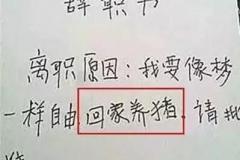 辞职书
离职原因:我要像梦
一样自由回家养猪.请批
准